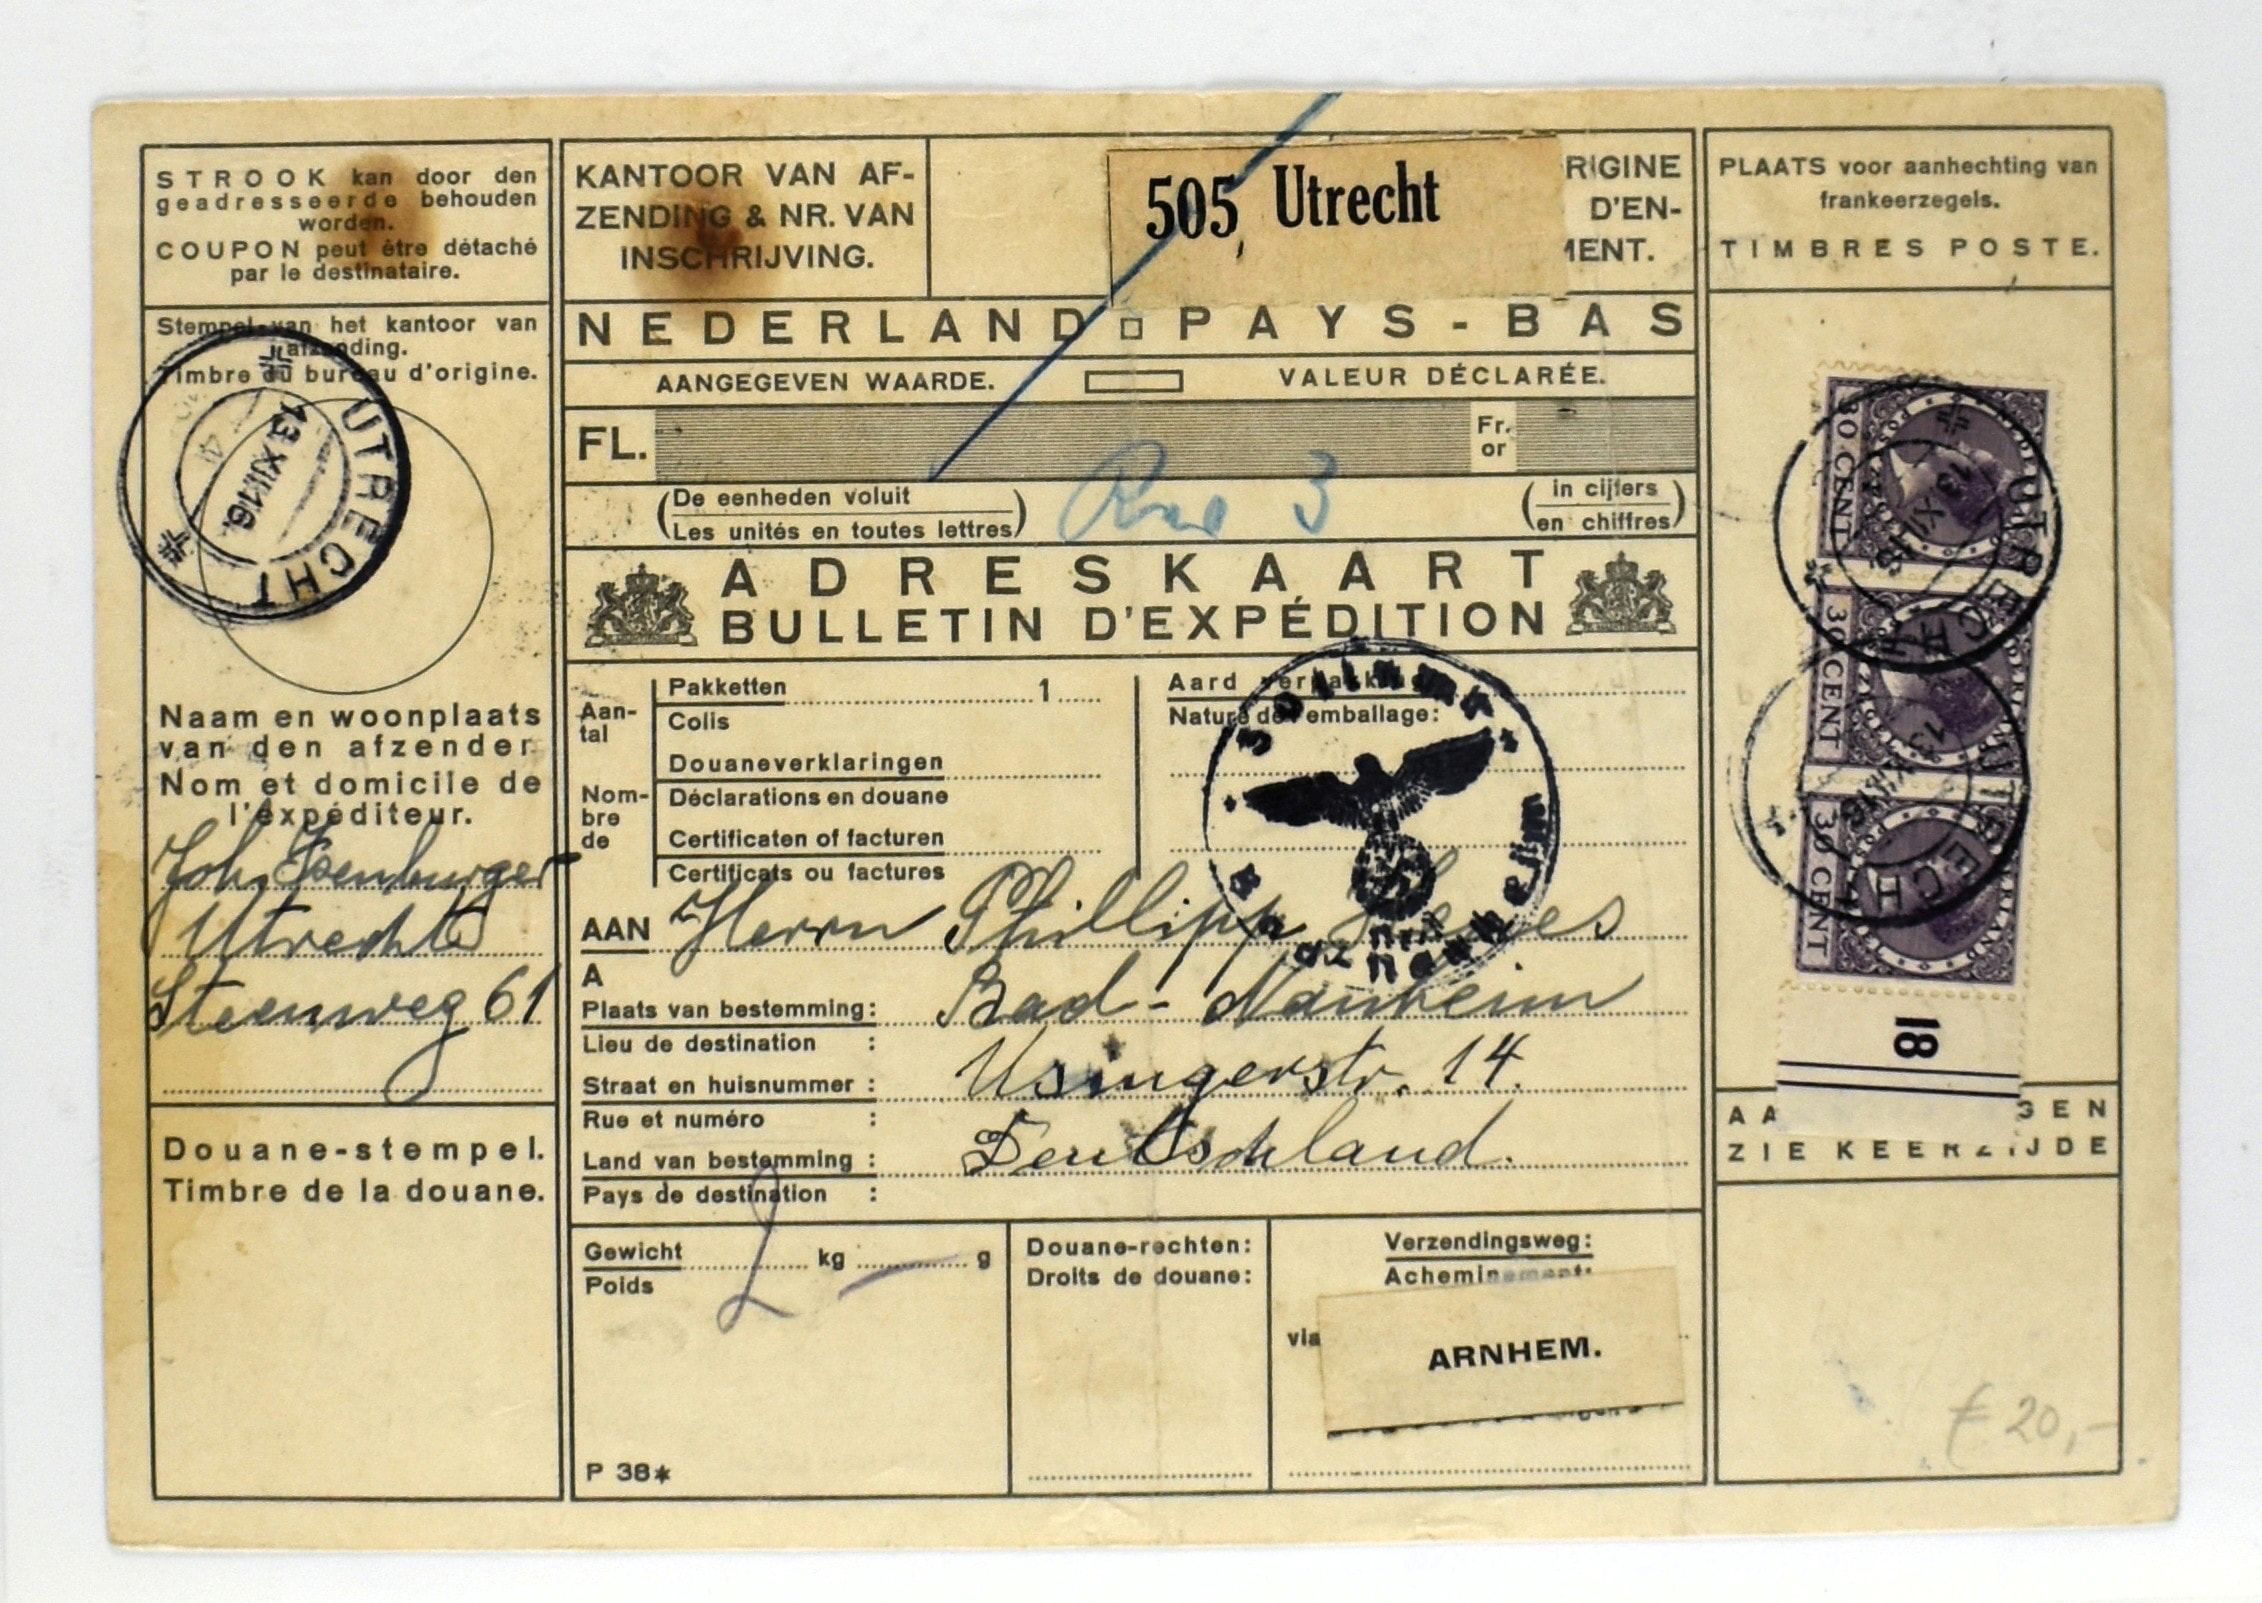 STROOK kan door den
geadresseerde behouden
worden.
COUPON peut être détaché
par le destinataire.
Stempel van het kantoor van
afzending.
Timbre du bureau d'origine.
UTRECHT
13.XII.16.
Naam en woonplaats
van den afzender
Nom et domicile de
l'expéditeur.
Joh. Isenburger
Utrecht
Steenweg 61
Douane-stempel.
Timbre de la douane.
KANTOOR VAN AF-
ZENDING & NR. VAN
INSCHRIJVING.
505, Utrecht
RIGINE
D'EN-
MENT.
NEDERLAND PAYS-BAS
AANGEGEVEN WAARDE. VALEUR DÉCLARÉE.
FL. Fr. or
(De eenheden voluit
Les unités en toutes lettres)
3
(in cijfers
en chiffres)
ADRESKAART
BULLETIN D'EXPÉDITION
Aan-
tal
Nom-
bre
de
Pakketten 1
Colis
Douaneverklaringen
Déclarations en douane
Certificaten of facturen
Certificats ou factures
Aard verpakking
Nature de l'emballage:
Zollamt
Bad Nauheim
AAN Herrn Phillipp
A
Plaats van bestemming: Bad-Nauheim
Lieu de destination :
Straat en huisnummer : Usingerstr. 14.
Rue et numéro :
Land van bestemming : Deutschland.
Pays de destination :
Gewicht 2 kg — g
Poids
P 38*
Douane-rechten:
Droits de douane:
Verzendingsweg:
Acheminement:
via ARNHEM.
PLAATS voor aanhechting van
frankeerzegels.
TIMBRES POSTE.
30 CENT NEDERLAND
30 CENT NEDERLAND
30 CENT NEDERLAND
UTRECHT
13.XII.16
UTRECHT
13.XII.16
18
AA GEN
ZIE KEERZIJDE
€ 20,-